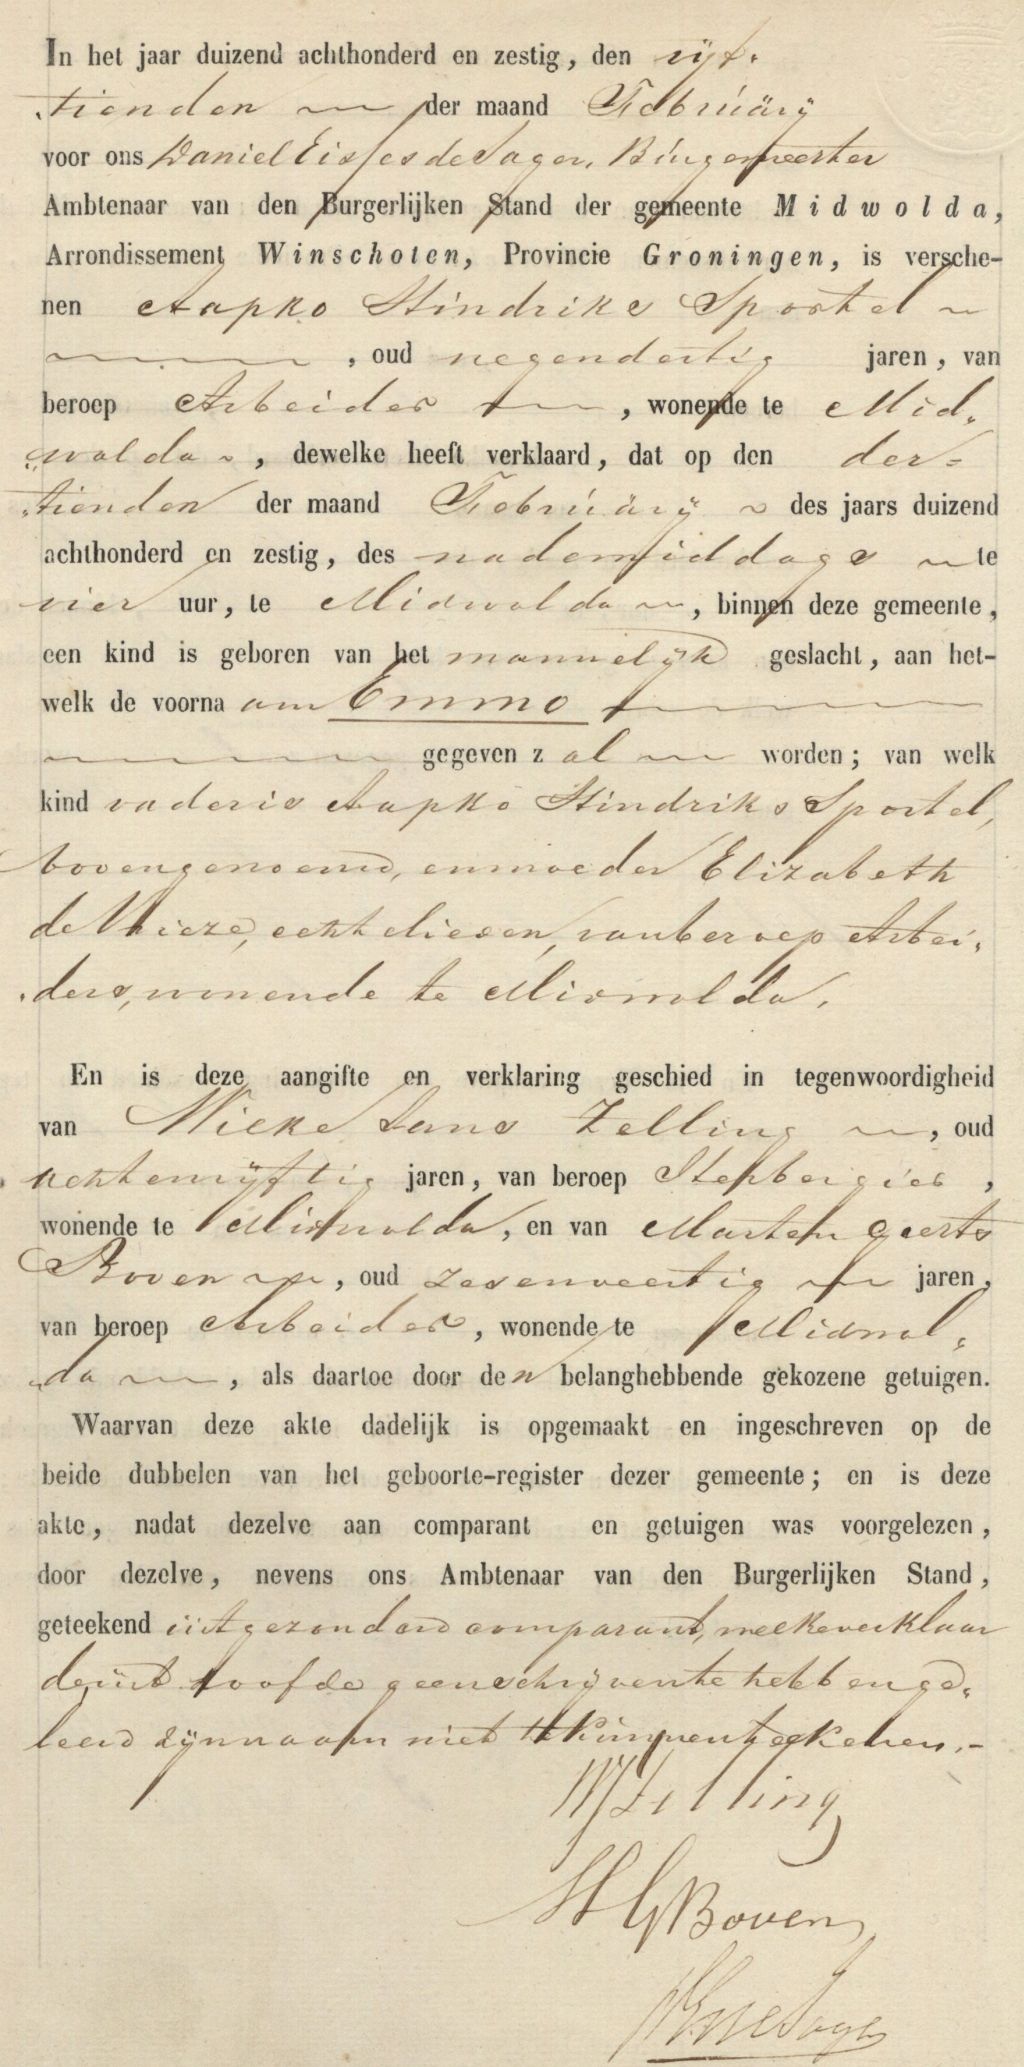 In het jaar duizend achthonderd en zestig, den vijf-
tienden der maand Februarij
voor ons Daniel Eisses de Sager, Burgemeester
Ambtenaar van den Burgerlijken Stand der gemeente Midwolda,
Arrondissement Winschoten, Provincie Groningen, is versche-
nen Aapko Hindriks Sportel
, oud negendertig jaren, van
beroep Arbeider, wonende te Mid-
wolda, dewelke heeft verklaard, dat op den der-
tienden der maand Februarij des jaars duizend
achthonderd en zestig, des nademiddags te
vier uur, te Midwolda, binnen deze gemeente,
een kind is geboren van het mannelijk geslacht, aan het-
welk de voornaam Emmo
gegeven zal worden; van welk
kind vader is Aapko Hindriks Sportel,
bovengenoemd, en moeder Elizabeth
de Vrieze, echtelieden, van beroep Arbei-
ders, wonende te Midwolda.
En is deze aangifte en verklaring geschied in tegenwoordigheid
van Jans Zelling, oud
achtenvijftig jaren, van beroep
wonende te Midwolda, en van Marten Geerts
Boven, oud zesenveertig jaren,
van beroep Arbeider, wonende te Midwol-
da, als daartoe door den belanghebbende gekozene getuigen.
Waarvan deze akte dadelijk is opgemaakt en ingeschreven op de
beide dubbelen van het geboorte-register dezer gemeente; en is deze
akte, nadat dezelve aan comparant en getuigen was voorgelezen,
door dezelve, nevens ons Ambtenaar van den Burgerlijken Stand,
geteekend uitgezonderd comparant, welke verklaar
de uit hoofde geen schrijven te hebben ge-
leerd zijn naam niet te kunnen teekenen.-
Zelling
M G Boven
DE de Sager